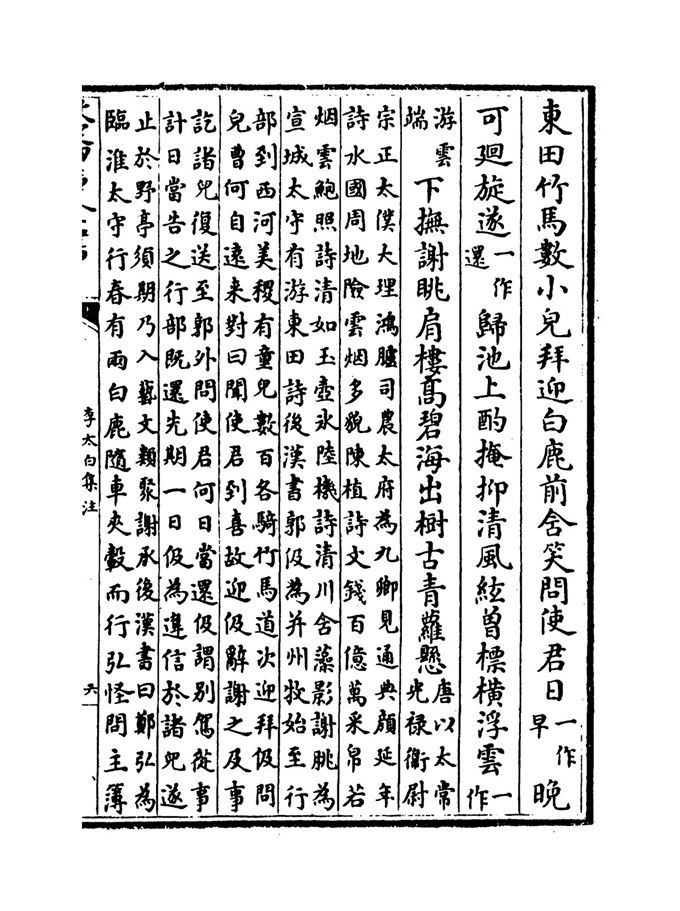 東田竹馬數小兒拜迎白鹿前含笑問使君日一作早晚
可廻旋遂一作還歸池上酌掩抑清風絃曽標橫浮雲一作
游雲端下撫謝朓肩樓髙碧海出樹古青蘿懸唐以太常光禄衛尉
宗正太僕大理鴻臚司農太府為九卿見通典顔延年
詩水國周地險雲烟多貌陳植詩文錢百億萬采帛若
烟雲鮑照詩清如玉壺氷陸機詩清川含藻影謝朓為
宣城太守有游東田詩後漢書郭伋為并州牧始至行
部到西河美稷有童兒數百各騎竹馬道次迎拜伋問
兒曹何自逺来對曰聞使君到喜故迎伋辭謝之及事
訖諸兒復送至郭外問使君何日當還伋謂别駕從事
計日當告之行部既還先期一日伋為違信於諸兒遂
止於野亭須期乃入藝文類聚謝承後漢書曰鄭弘為
臨淮太守行春有兩白鹿隨車夾轂而行弘怪問主簿
李太白集注